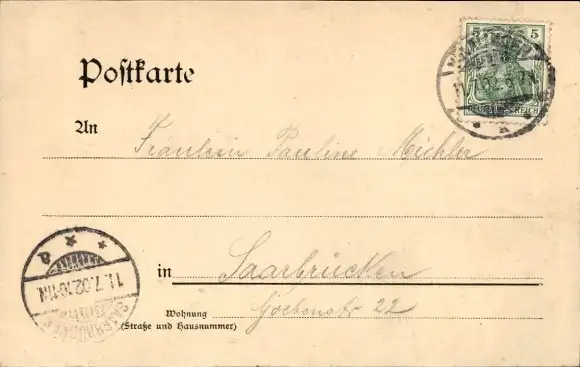 Postkarte
5
An
Fräulein Pauline Michler
in Saarbrücken
Wohnung
(Straße und Hausnummer)
Goebenstr 22
11.7.02.10-11N.
a